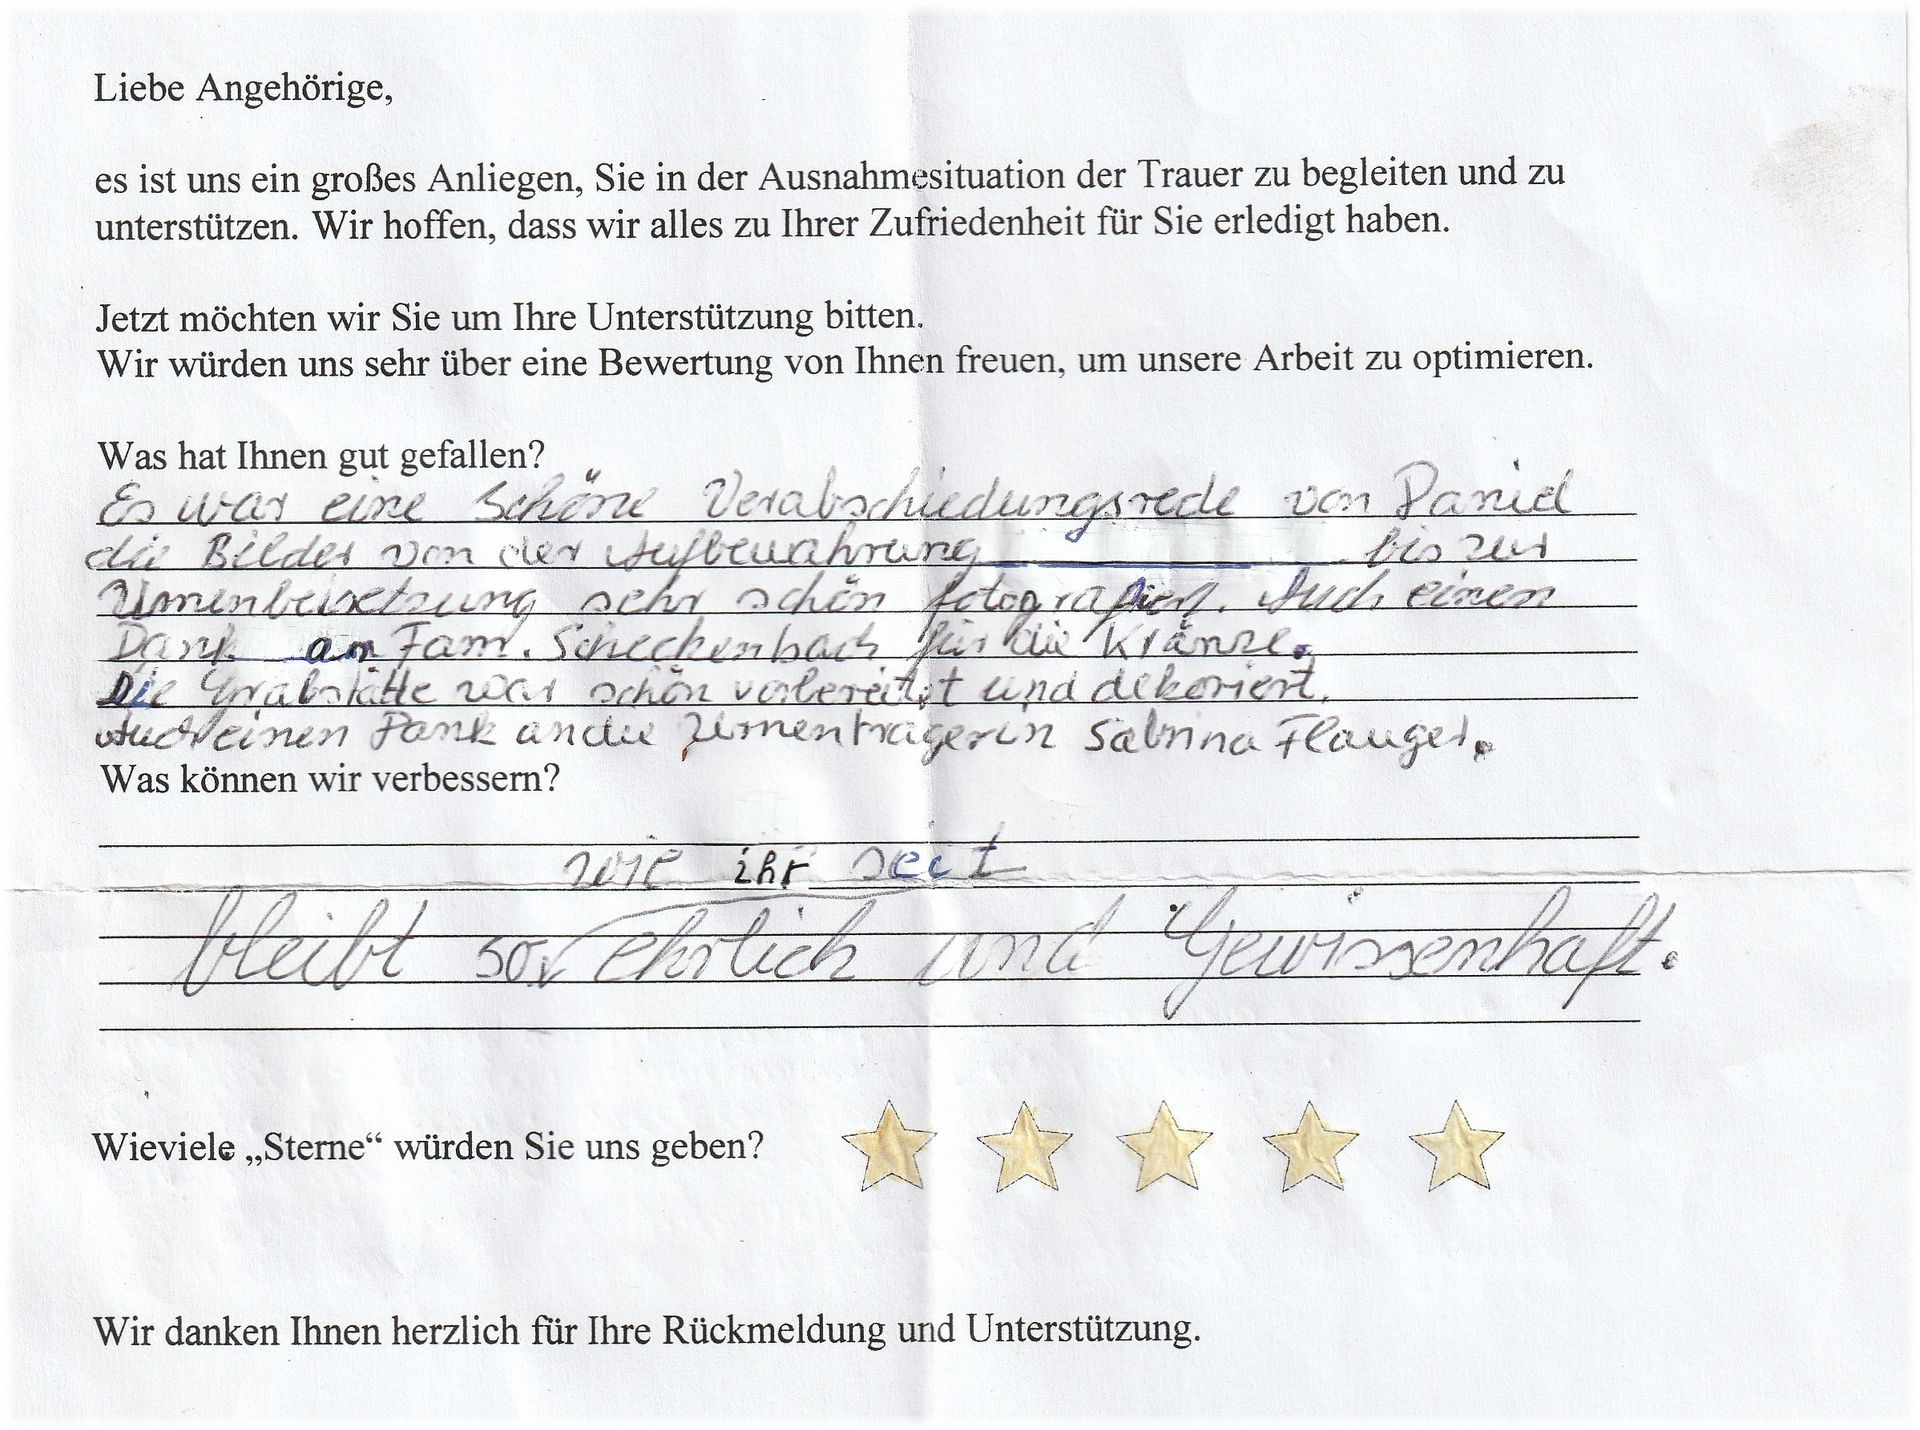 Liebe Angehörige,
es ist uns ein großes Anliegen, Sie in der Ausnahmesituation der Trauer zu begleiten und zu
unterstützen. Wir hoffen, dass wir alles zu Ihrer Zufriedenheit für Sie erledigt haben.
Jetzt möchten wir Sie um Ihre Unterstützung bitten.
Wir würden uns sehr über eine Bewertung von Ihnen freuen, um unsere Arbeit zu optimieren.
Was hat Ihnen gut gefallen?
Es war eine schöne Verabschiedungsrede von Daniel
die Bilder von der Aufbewahrung bis zur
Urnenbeisetzung sehr schön fotografiert. Auch einen
Dank an Fam. Scheckenbach für die Kränze.
Die Grabstätte war schön vorbereitet und dekoriert.
Auch einen Dank an die Urnenträgerin Sabrina Flauger.
Was können wir verbessern?
wie ihr seit
bleibt so ehrlich und Gewissenhaft.
Wieviele „Sterne“ würden Sie uns geben?
Wir danken Ihnen herzlich für Ihre Rückmeldung und Unterstützung.